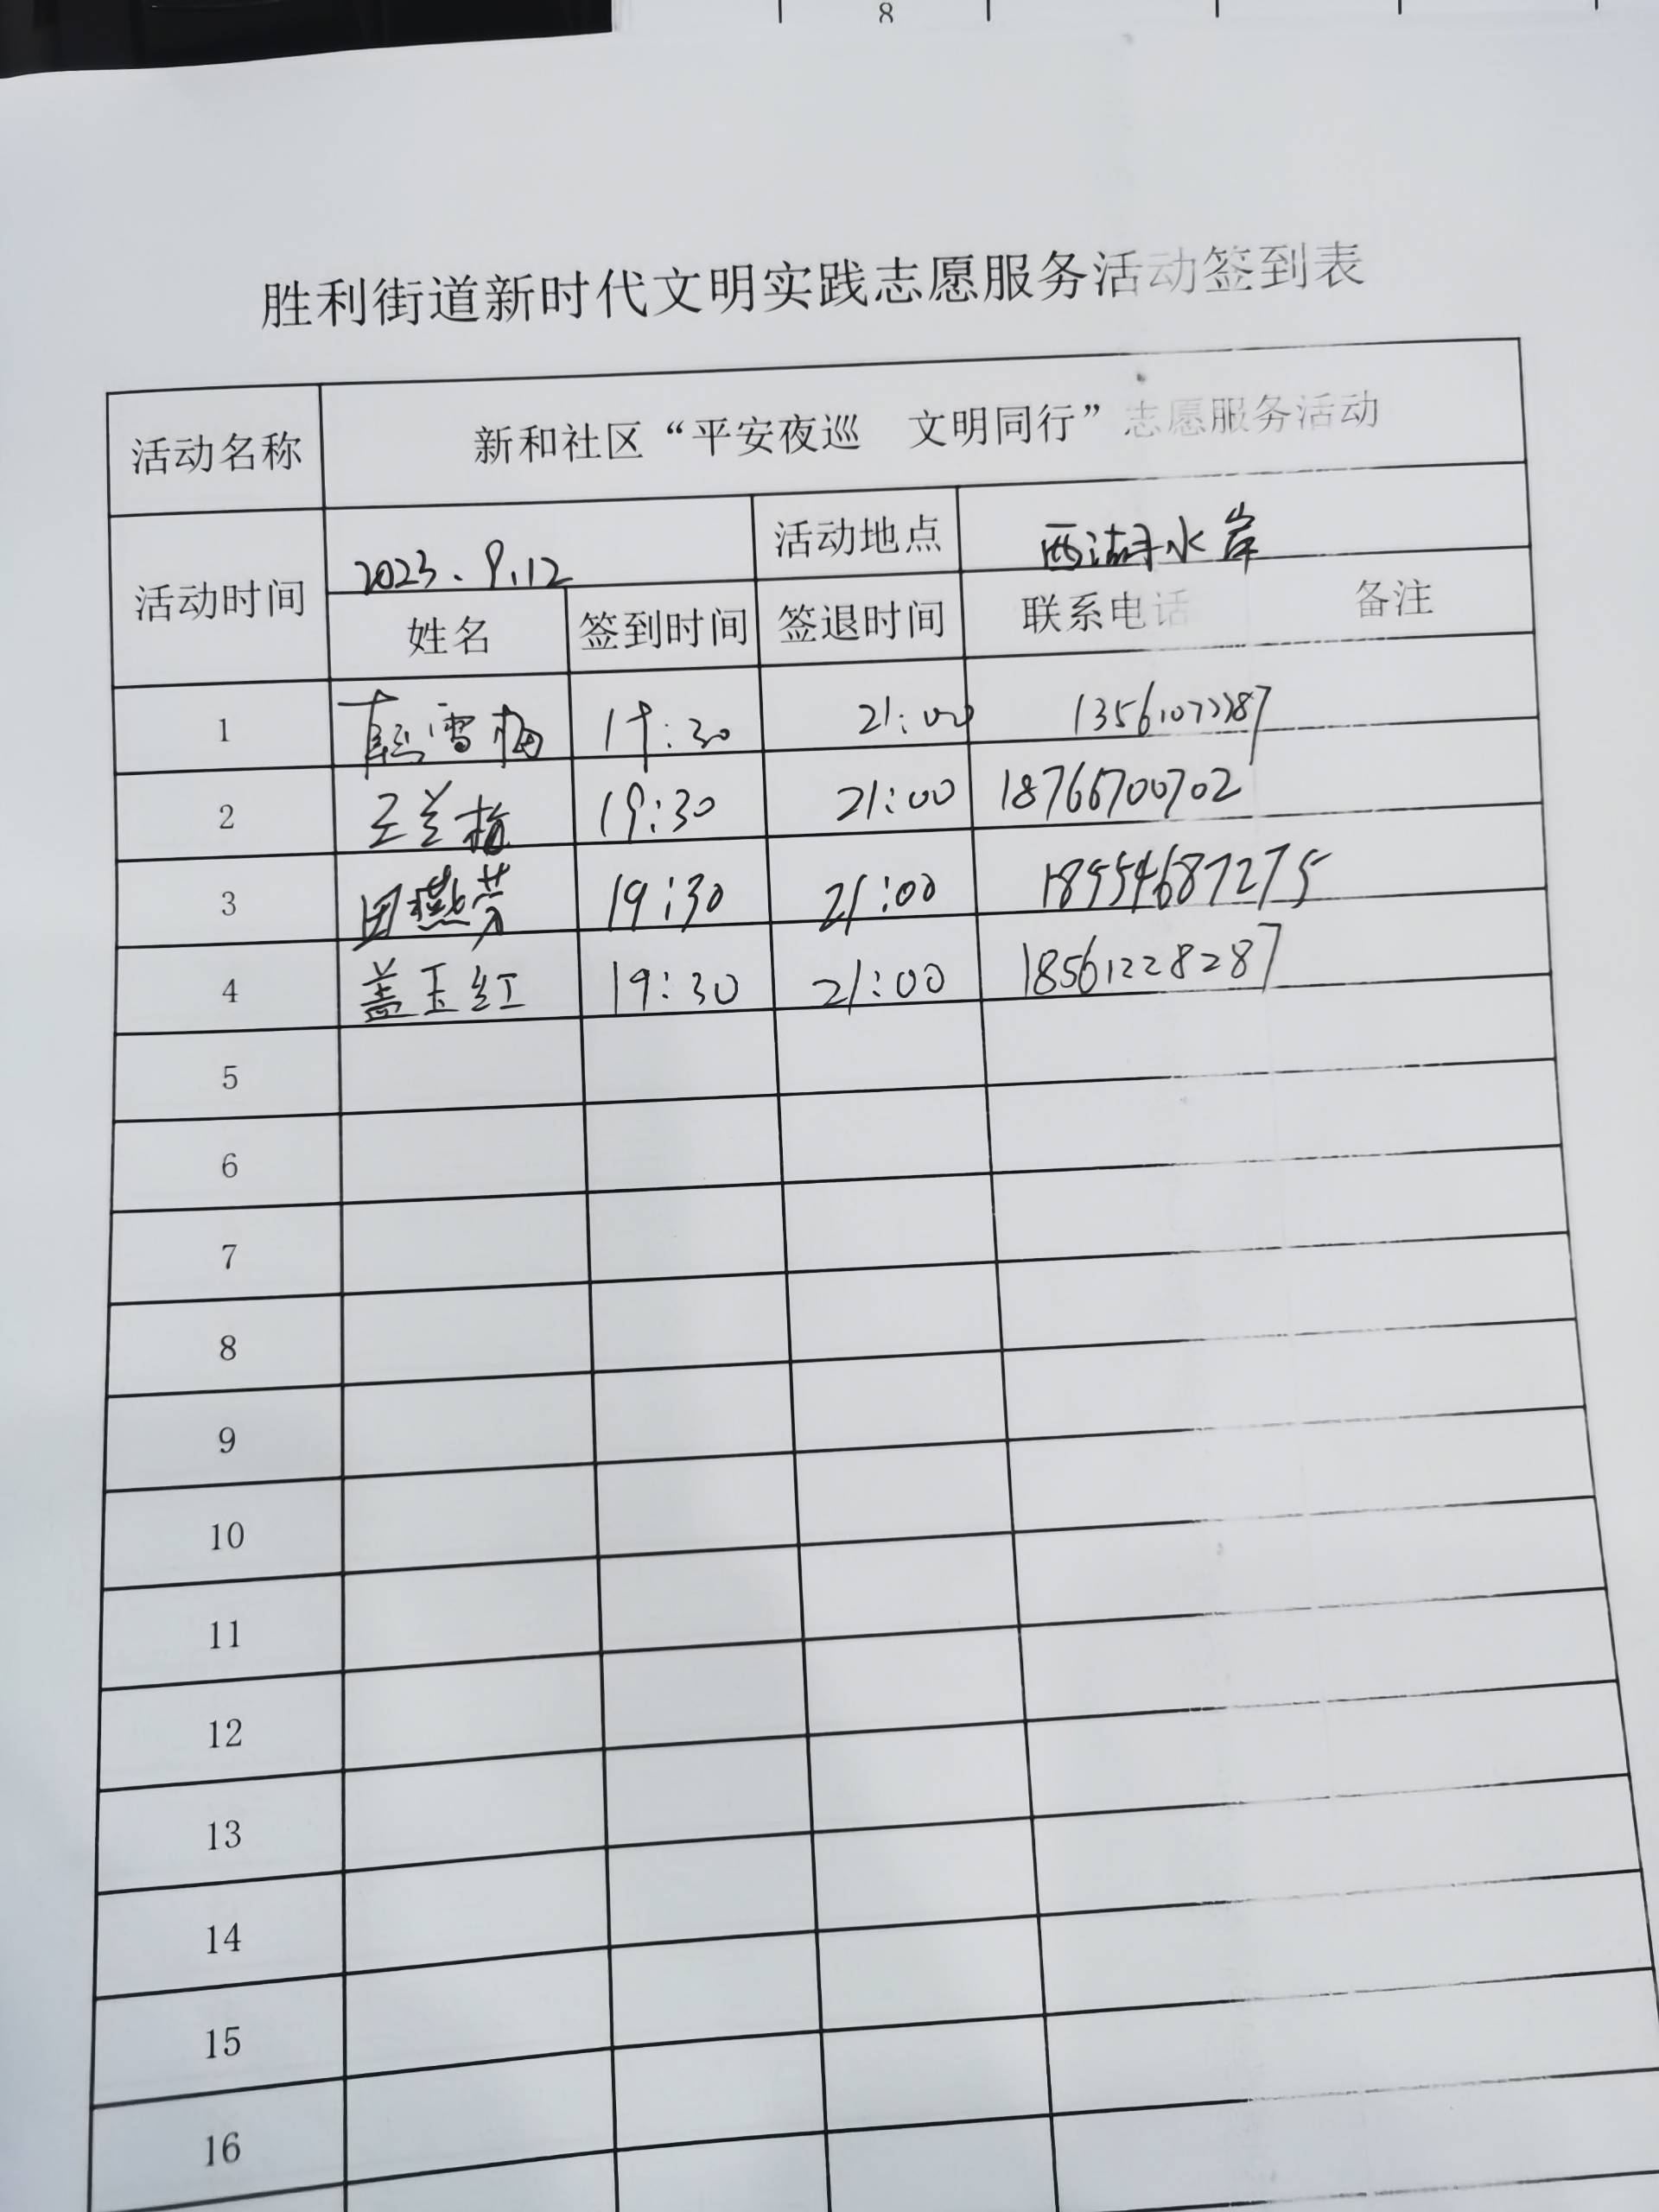 8
胜利街道新时代文明实践志愿服务活动签到表
活动名称 新和社区“平安夜巡 文明同行”志愿服务活动
活动时间 2023.9.12 活动地点 西湖水岸
姓名 签到时间 签退时间 联系电话 备注
1 雪梅 19:30 21:00
2 王兰梅 19:30 21:00 18766700702
3 田燕芳 19:30 21:00 18954687275
4 盖玉红 19:30 21:00 18561228287
5
6
7
8
9
10
11
12
13
14
15
16